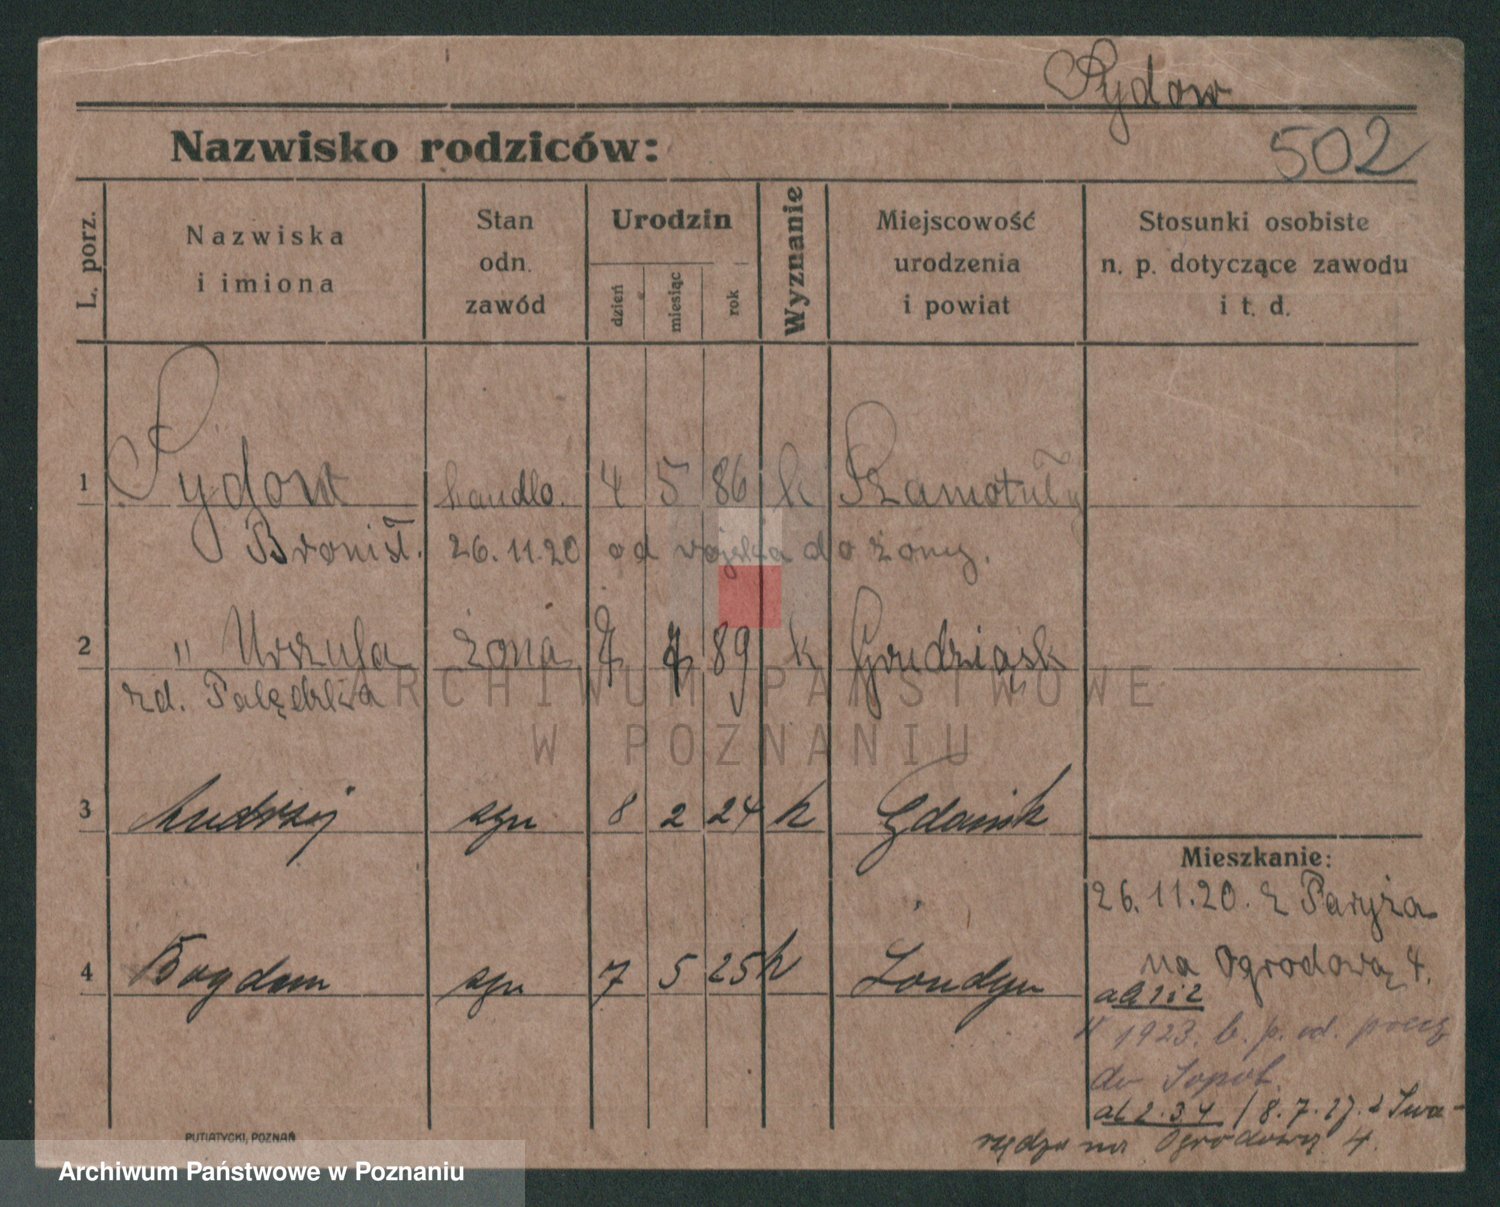 Sydow
Nazwisko rodziców:
502
L. porz.
Nazwiska
i imiona
Stan
odn.
zawód
Urodzin
dzień
miesiąc
rok
Wyznanie
Miejscowość
urodzenia
i powiat
Stosunki osobiste
n. p. dotyczące zawodu
i t. d.
1 Sydow handlo. 4 5 86 k Szamotuły
Bronisł. 26.11.20 od wojska do żony.
2 " Urszula żona 7 89 k Grudziądz
rd.
3 Andrzej syn 8 2 24 k Gdańsk
Mieszkanie:
26.11.20. z Paryża
na Ogrodową 4.
4 Bogdan syn 7 5 25 k Londyn
ab 1 i 2
1923. b. p. od.
do Sopot.
ab 2.3.4 / 8.7.27. z Swa-
rzędza na Ogrodową 4.
PUTIATYCKI, POZNAŃ
ARCHIWUM PAŃSTWOWE
W POZNANIU
Archiwum Państwowe w Poznaniu